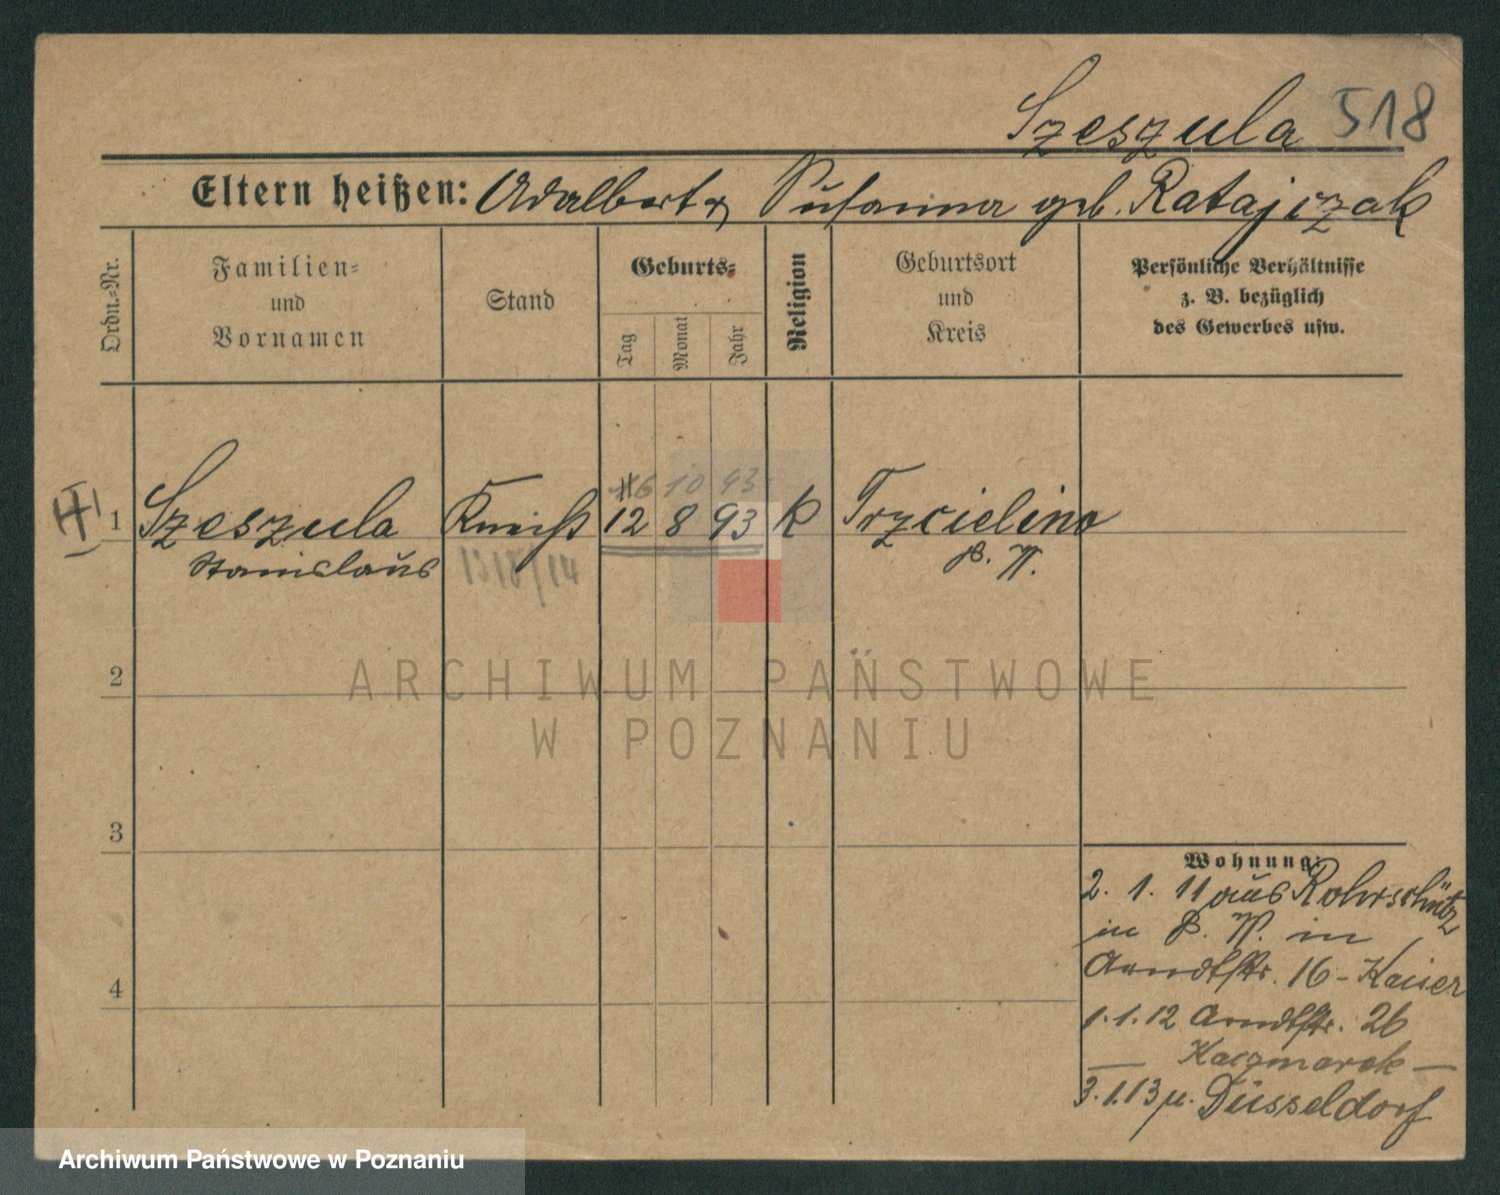 Szeszula 518
Eltern heißen: Adalbert & Susanna geb. Ratajczak
Ordn.=Nr.
Familien=
und
Vornamen
Stand
Geburts=
Tag
Monat
Jahr
Religion
Geburtsort
und
Kreis
Persönliche Verhältnisse
z. B. bezüglich
des Gewerbes usw.
6 10 93
1 Szeszula 12 8 93 k Trzcielino
Stanislaus 1318/14 P. W.
2
ARCHIWUM PAŃSTWOWE
W POZNANIU
3
4
Wohnung:
2. 1. 11 aus Rohrschütz
in P. W. in
Arndtstr. 16 - Kaiser
1.1.12 Arndtstr. 26
— Kaczmarek —
3.1.13 n. Düsseldorf
Archiwum Państwowe w Poznaniu